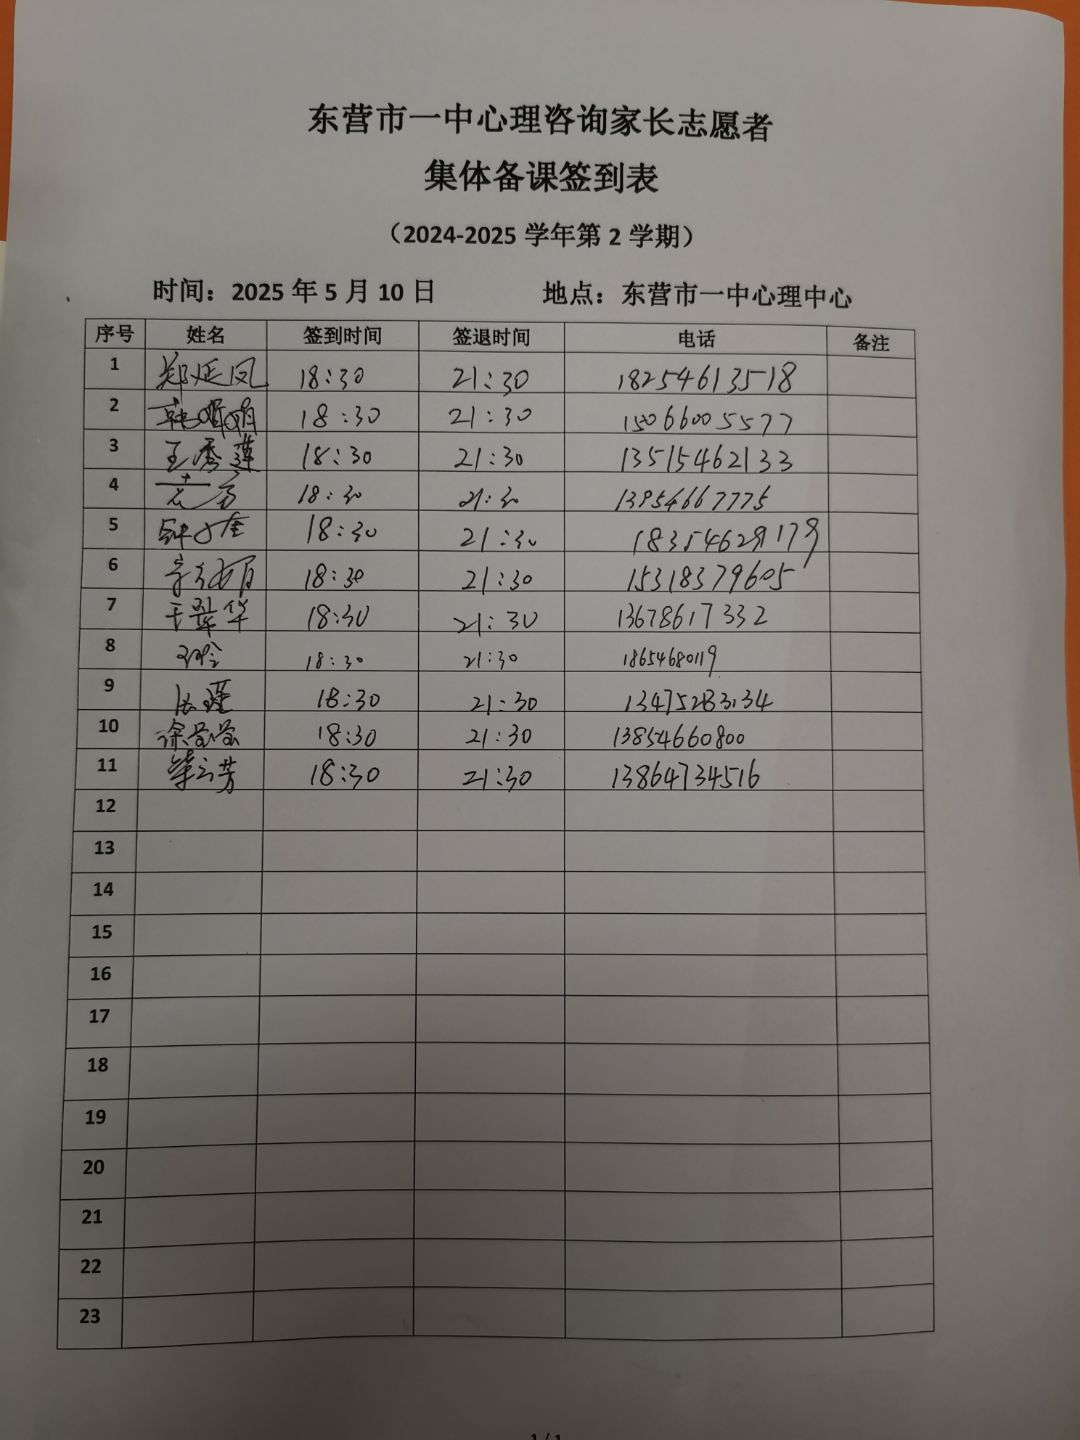 东营市一中心理咨询家长志愿者
集体备课签到表
（2024-2025 学年第 2 学期）
时间：2025 年 5 月 10 日 地点：东营市一中心理中心
序号 姓名 签到时间 签退时间 电话 备注
1 郑延凤 18:30 21:30 18254613518
2 18:30 21:30 15066005577
3 王秀莲 18:30 21:30 13515462133
4 18:30 21:30 13954667775
5 18:30 21:30 18354629179
6 18:30 21:30 15318379605
7 于翠华 18:30 21:30 13678617332
8 18:30 21:30 18654680119
9 18:30 21:30 13475283134
10 徐莹莹 18:30 21:30 13854660800
11 18:30 21:30 13864734516
12
13
14
15
16
17
18
19
20
21
22
23
1 / 1